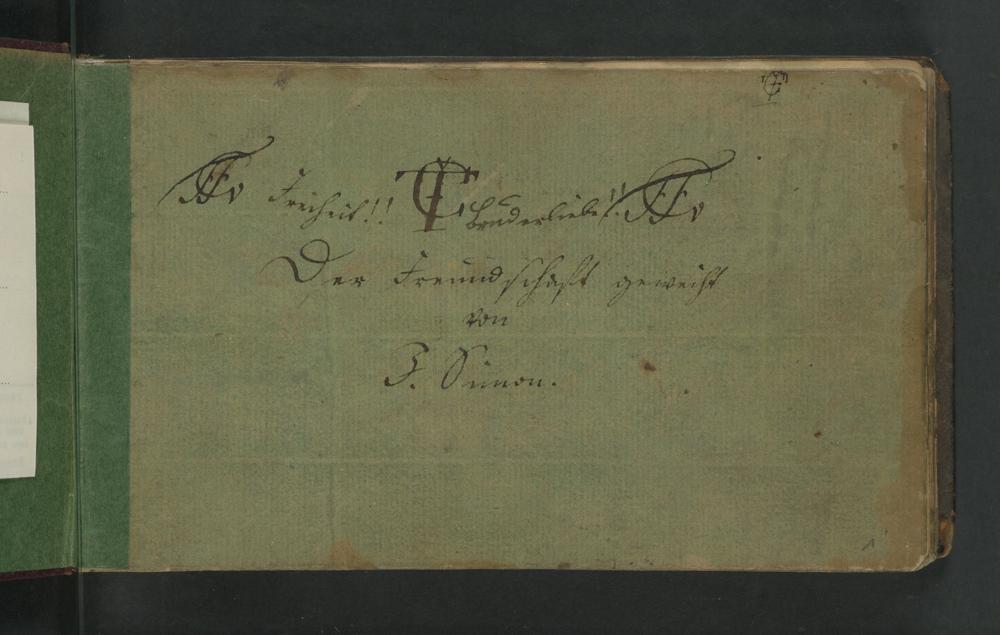 Freiheit!! Bruderliebe!!
Der Freundschaft geweiht
von
J. Simon.
1